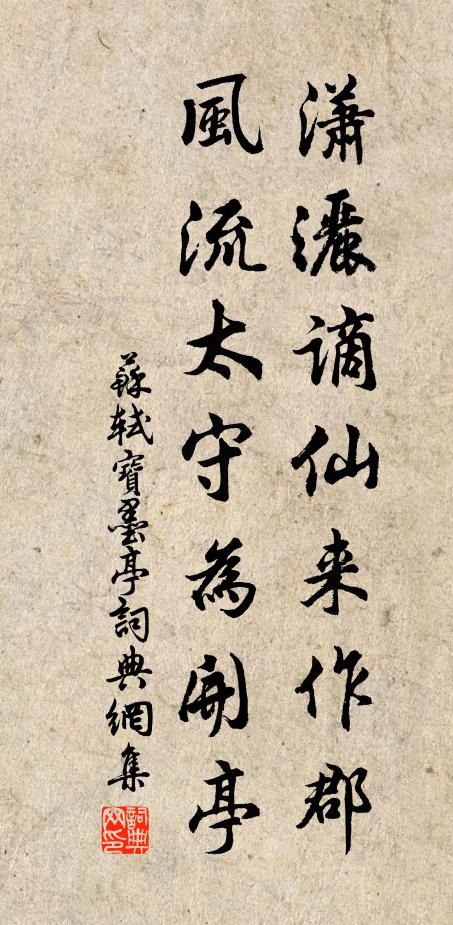 瀟灑謫仙来作郡
風流太守為開亭
蘇軾寶墨亭詞典網集
詞典網印